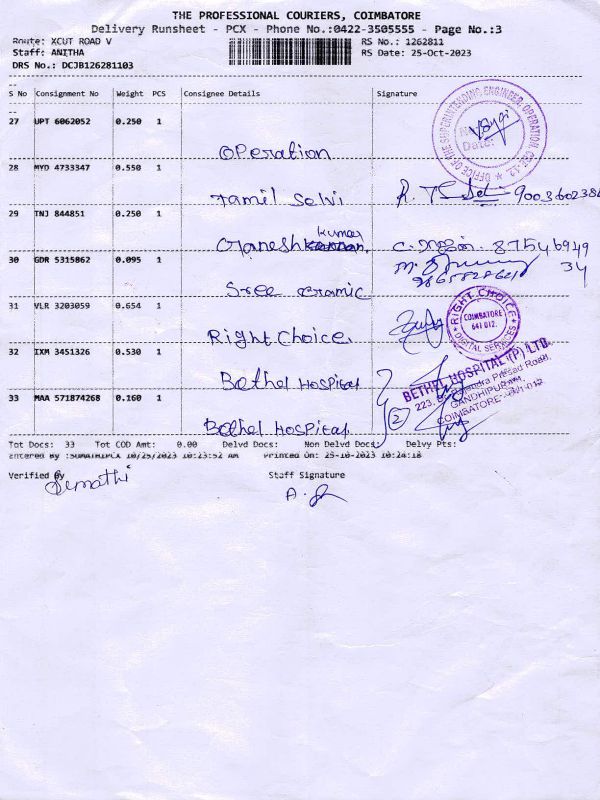 THE PROFESSIONAL COURIERS, COIMBATORE
Delivery Runsheet - PCX - Phone No.:0422-3505555 - Page No.:3
Route: XCUT ROAD V
RS No.: 1262811
Staff: ANITHA
RS Date: 25-Oct-2023
DRS No.: DCJB126281103
S No Consignment No Weight PCS Consignee Details Signature
27 UPT 6062052 0.250 1
Operation
OFFICE OF THE SUPERINTENDING ENGINEER, OPERATION, CBE-12.
Date:
28 MYD 4733347 0.550 1
Tamil Selvi
29 TNJ 844851 0.250 1
Ganesh kumar
87546949
34
30 GDR 5315862 0.095 1
Sree Ceramic
31 VLR 3203059 0.654 1
Right Choice
RIGHT CHOICE
COIMBATORE
641 012.
DIGITAL SERVICES
32 IXM 3451326 0.530 1
Bethel Hospital
BETHEL HOSPITAL (P) LTD
223, Rajendra Prasad Road,
GANDHIPURAM,
COIMBATORE-641 012
33 MAA 571874268 0.160 1
Bethel Hospital
2
Tot Docs: 33 Tot COD Amt: 0.00 Delvd Docs: Non Delvd Docs: Delvy Pts:
Entered By :SUMATHIPCX 10/25/2023 10:23:52 AM Printed On: 25-10-2023 10:24:18
Verified By Staff Signature